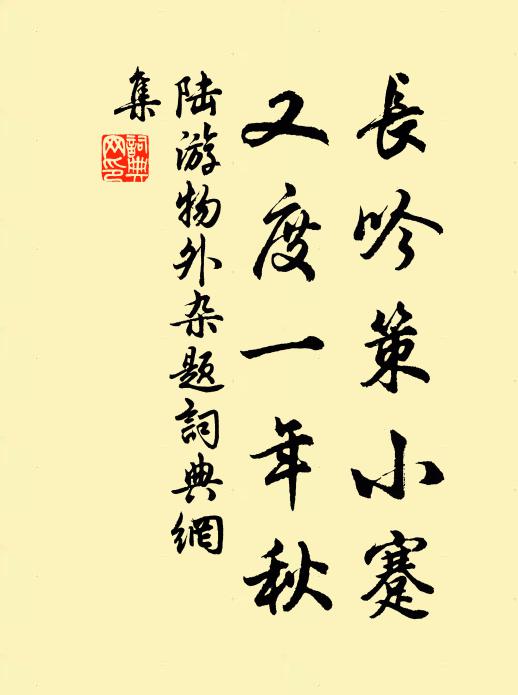 長吟策小蹇
又度一年秋
陆游物外杂题詞典網
集
詞典网印